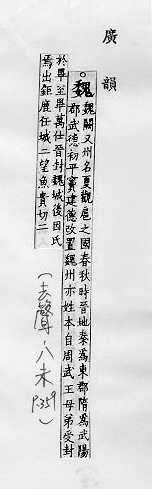 廣韻
魏 魏闕又州名夏觀扈之國春秋時晉地秦爲東郡隋爲武陽
郡武德初平竇建德改置魏州亦姓本自周武王母弟受封
於畢至畢萬仕晉封魏城後因氏
焉出鉅鹿任城二望魚貴切二
(去聲·八未 P359)